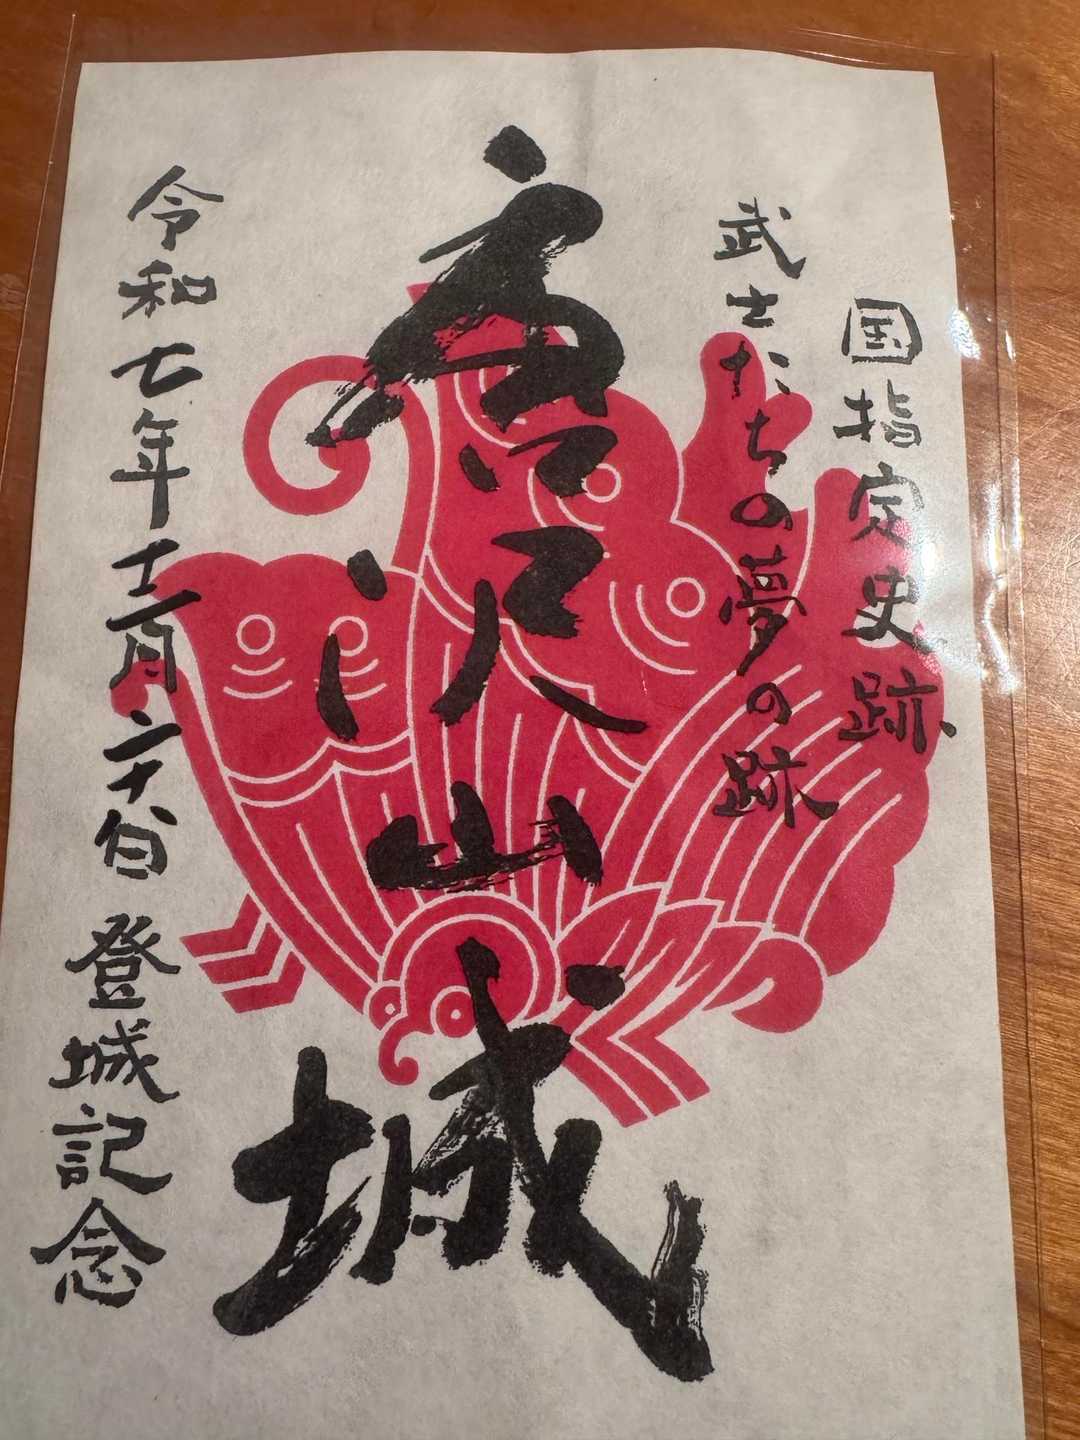 国指定史跡
武士たちの夢の跡
唐沢山城
令和七年十二月二十八日 登城記念